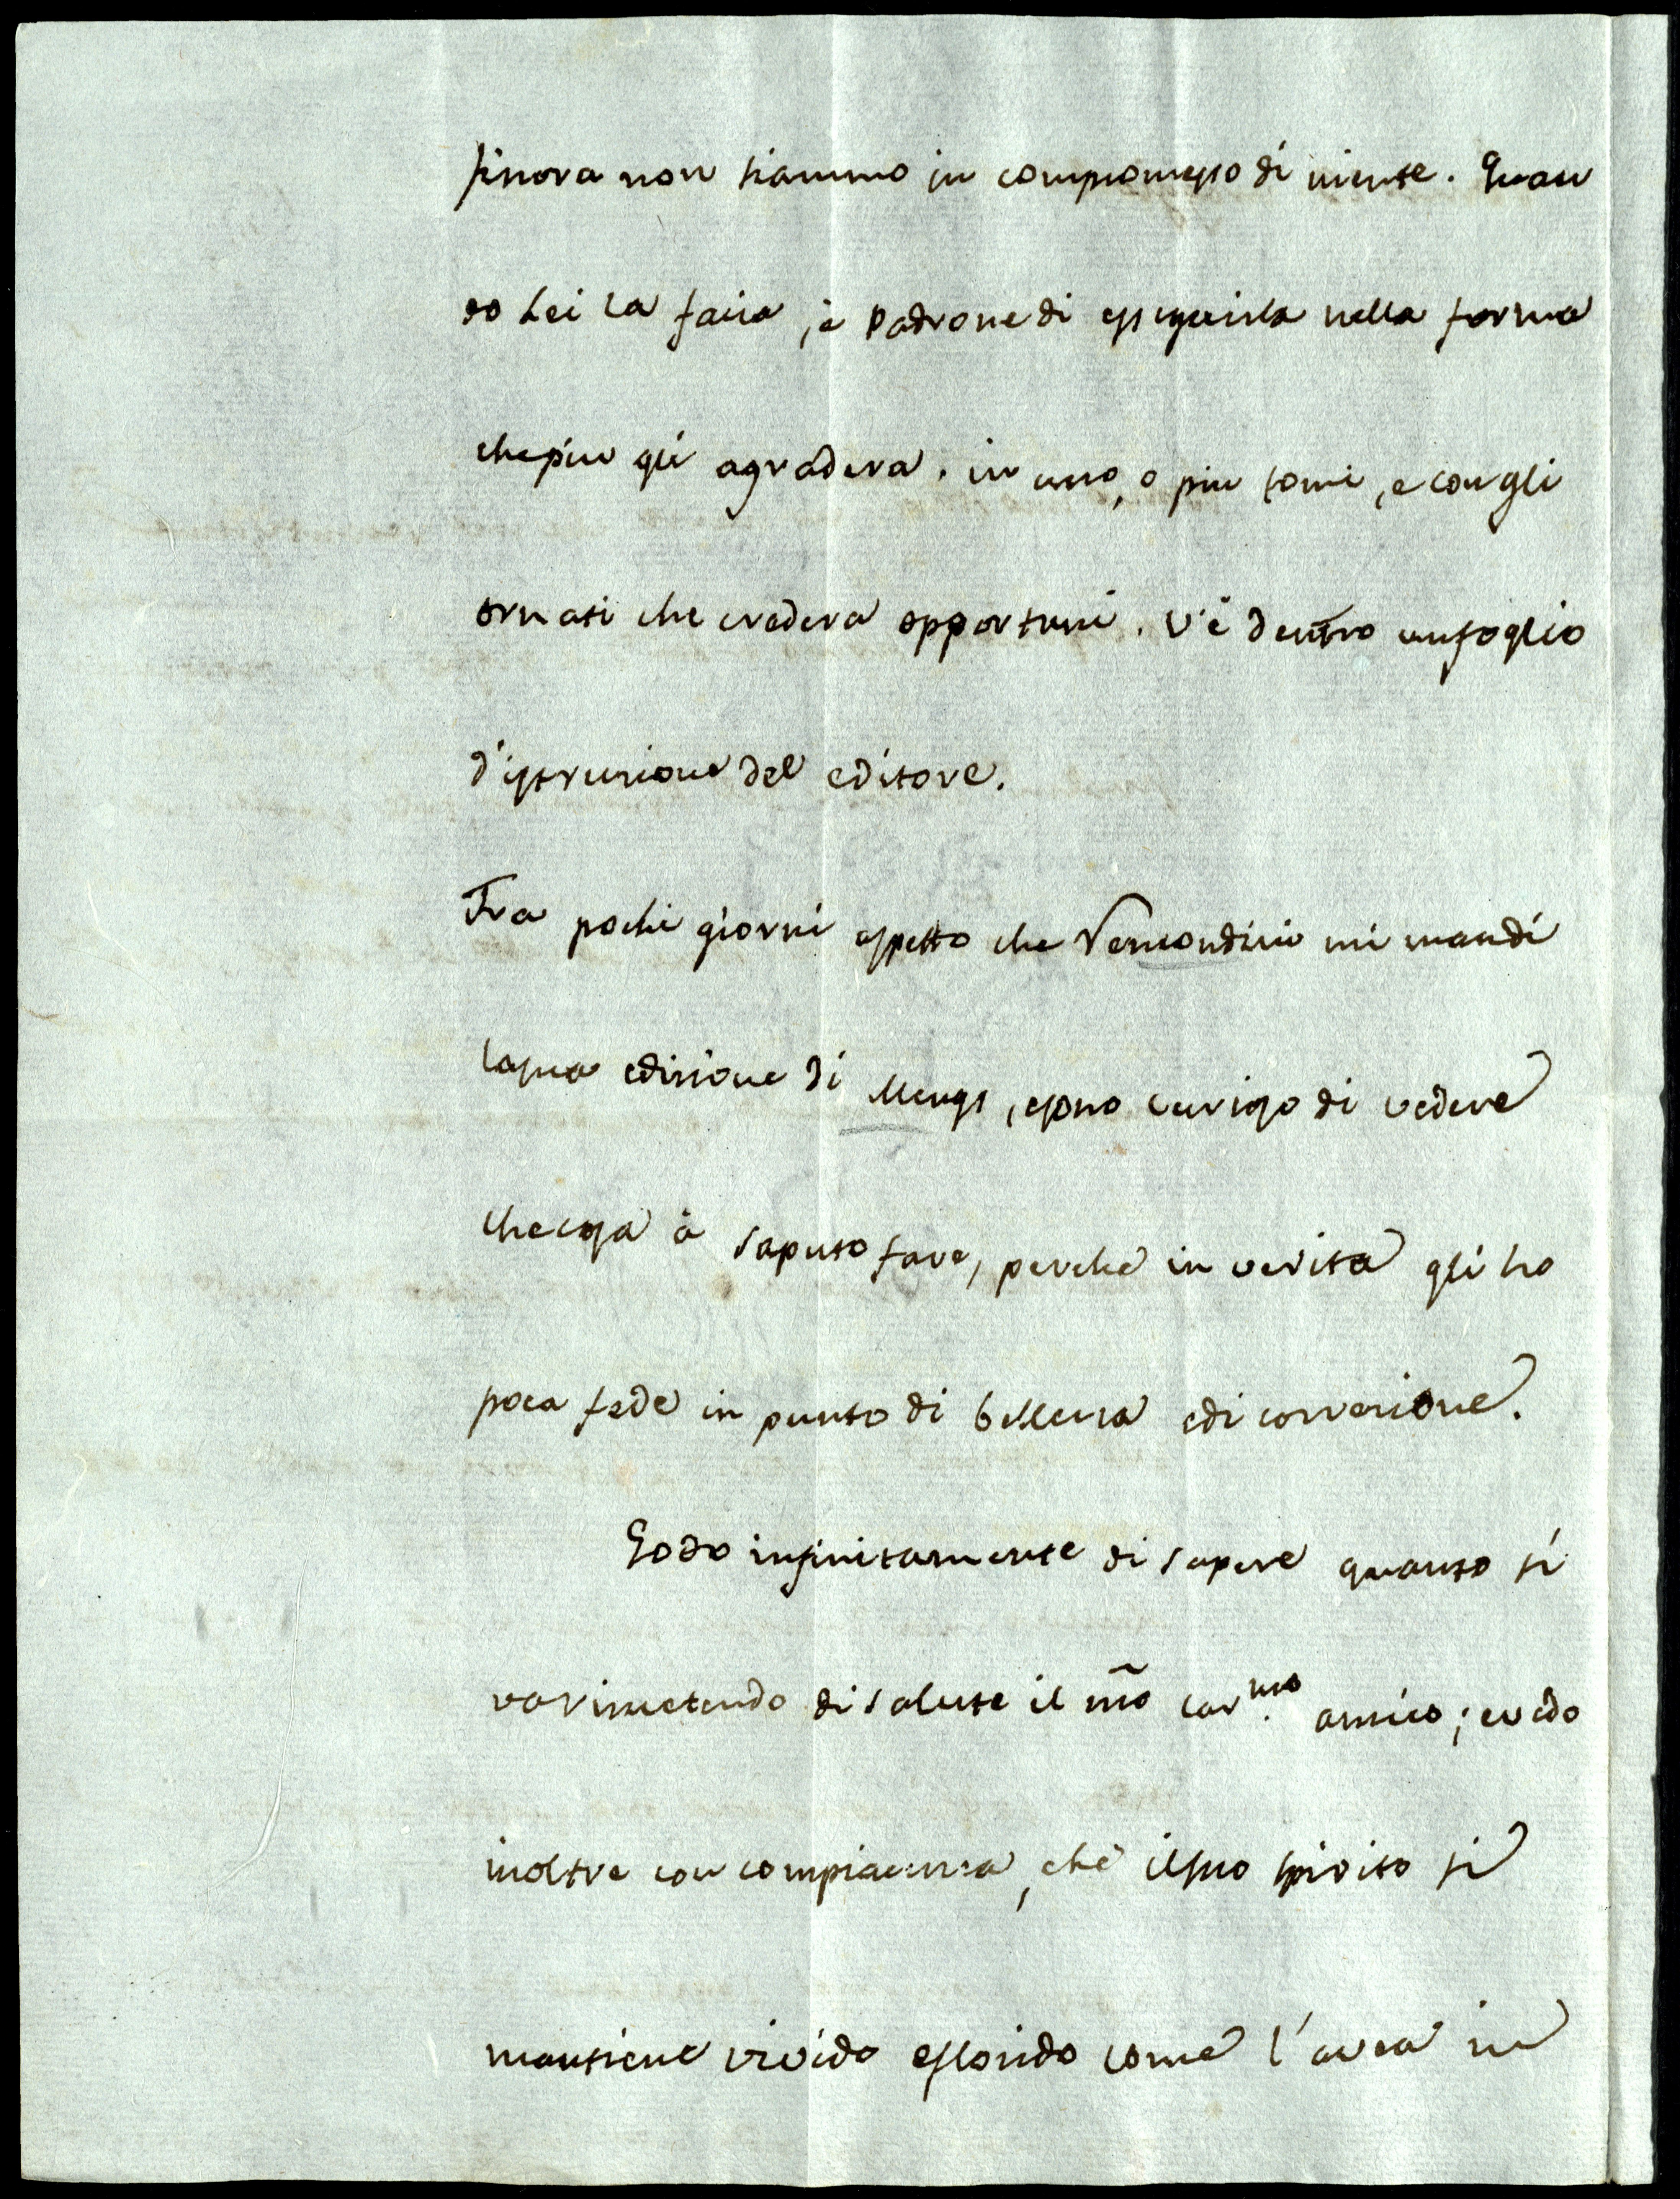 finora non siammo in compromesso di niente. Quan
do Lei la facia, è Padrone di esseguirla nella forma
che piu gli agradera. in uno, o piu tomi, e con gli
ornati che credera opportuni. V'è dentro un foglio
d'istruzione del editore.
Fra pochi giorni aspetto che Remondini mi mandi
la sua edizione di Mengs, e sono curioso di vedere
che cosa à saputo fare, perche in verita gli ho
poca fede in punto di bellezza e di correzione.
Godo infinitamente di sapere quanto si
va rimetendo di salute il mõ car.mo amico; e vedo
inoltre con compiacenza, che il suo spirito si
mantiene vivido e florido come l'avea in